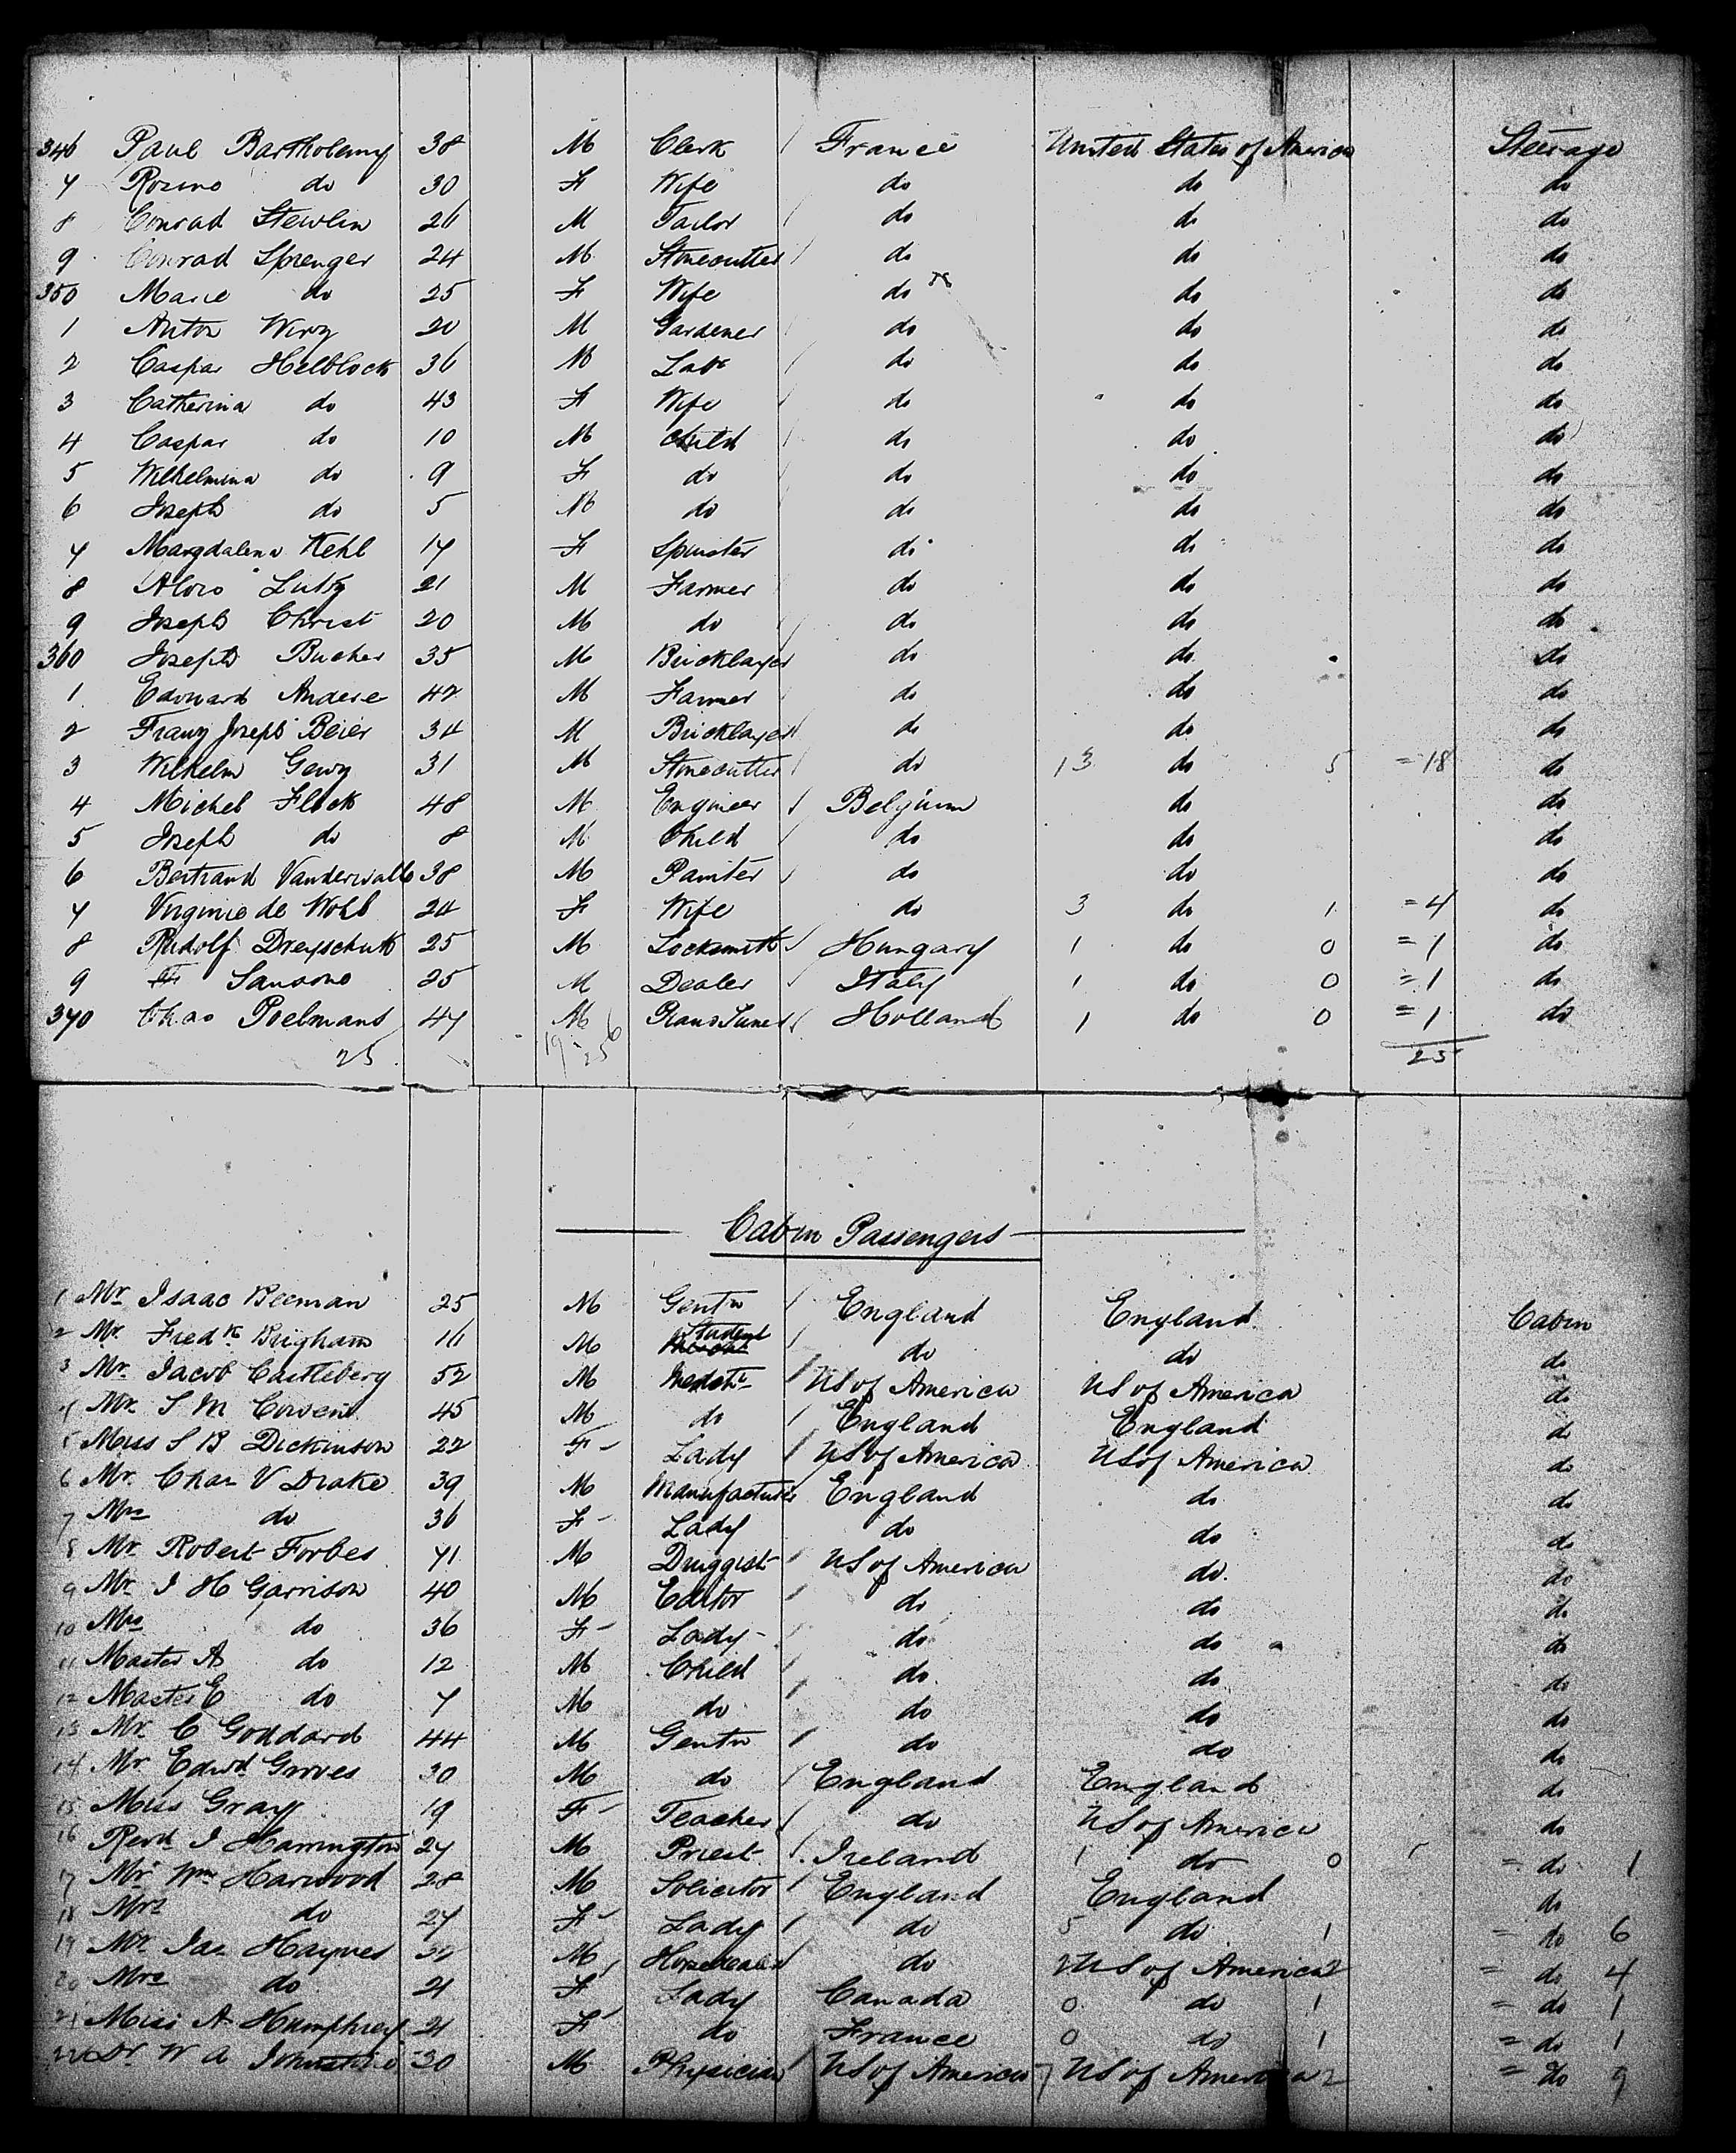 346 Paul Bartholemy 38 M Clerk France United States of America Steerage
7 Rosine do 30 F Wife do do do
8 Conrad Stewlin 26 M Tailor do do do
9 Conrad Sprenger 24 M Stonecutter do do do
350 Marie do 25 F Wife do do do
1 Anton Wirz 20 M Gardener do do do
2 Caspar Helblock 36 M Labr do do do
3 Catherina do 43 F Wife do do do
4 Caspar do 10 M Child do do do
5 Wilhelmina do 9 F do do do do
6 Joseph do 5 M do do do do
7 Margdalena Kehl 17 F Spinster do do do
8 Alois Lutz 21 M Farmer do do do
9 Joseph Christ 20 M do do do do
360 Joseph Bucher 35 M Bricklayer do do do
1 Edouard Andere 42 M Farmer do do do
2 Franz Joseph Beier 34 M Bricklayer do do do
3 Wilhelm Gewz 31 M Stonecutter do 13 do 5 =18 do
4 Michel Flock 48 M Engineer Belgium do do
5 Joseph do 8 M Child do do do
6 Bertrand Vanderwalle 38 M Painter do do do
7 Virginie de Wohl 24 F Wife do 3 do 1 =4 do
8 Rudolf Dreyschutt 25 M Locksmith Hungary 1 do 0 =1 do
9 Sansone 25 M Dealer Italy 1 do 0 =1 do
370 Chas Poelmans 47 M Piano Tuner Holland 1 do 0 =1 do
25 19 - 6 25 25
Cabin Passengers
1 Mr Isaac Beeman 25 M Gentn England England Cabin
2 Mr Fredk Brigham 16 M Student do do do
3 Mr Jacob Castleberg 52 M Mercht US of America US of America do
4 Mr S M 45 M do England England do
5 Miss S B Dickinson 22 F Lady US of America US of America do
6 Mr Chas V Drake 39 M Manufacturer England do do
7 Mrs do 36 F Lady do do do
8 Mr Robert Forbes 41 M Druggist US of America do do
9 Mr J H Garrison 40 M Editor do do do
10 Mrs do 36 F Lady do do do
11 Master A do 12 M Child do do do
12 Master E do 7 M do do do do
13 Mr C Goddard 44 M Gentn do do do
14 Mr Edwd Groves 30 M do England England do
15 Miss Gray 19 F Teacher do US of America do
16 Revd J Harrington 27 M Priest Ireland 1 do 0 = do 1
17 Mr Wm Harwood 28 M Solicitor England England do
18 Mrs do 27 F Lady do 5 do 1 = do 6
19 Mr Jas Haynes 32 M Horsedealer do 2 US of America 2 = do 4
20 Mrs do 21 F Lady Canada 0 do 1 = do 1
21 Miss A Humphrey 21 F do France 0 do 1 = do 1
22 Dr W A 30 M Physician US of America 7 US of America 2 = do 9